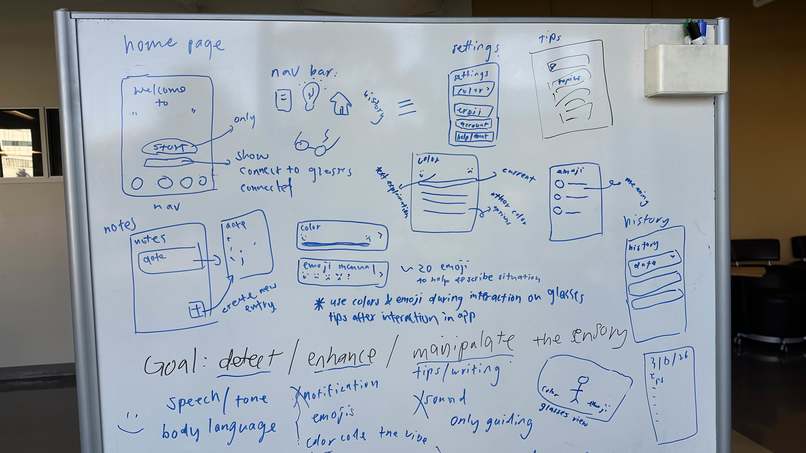 home page
welcome
to
" "
start
only
show
connect to glasses
connected
nav
nav bar:
history
settings
settings
color >
emoji
account
help/about
tips
topics
color
text explanation
current
other color
options
emoji
meaning
notes
notes
date
+
create new
entry
note
color
>
emoji manual
>
~20 emoji
to help describe situation
* use colors & emoji during interaction on glasses
tips after interaction in app
history
history
date
Goal: detect / enhance / manipalate the sensory
speech / tone
body language
notification
emojis
color code the vibe
tips/writing
sound
only guiding
color
emoji
glasses view
tips